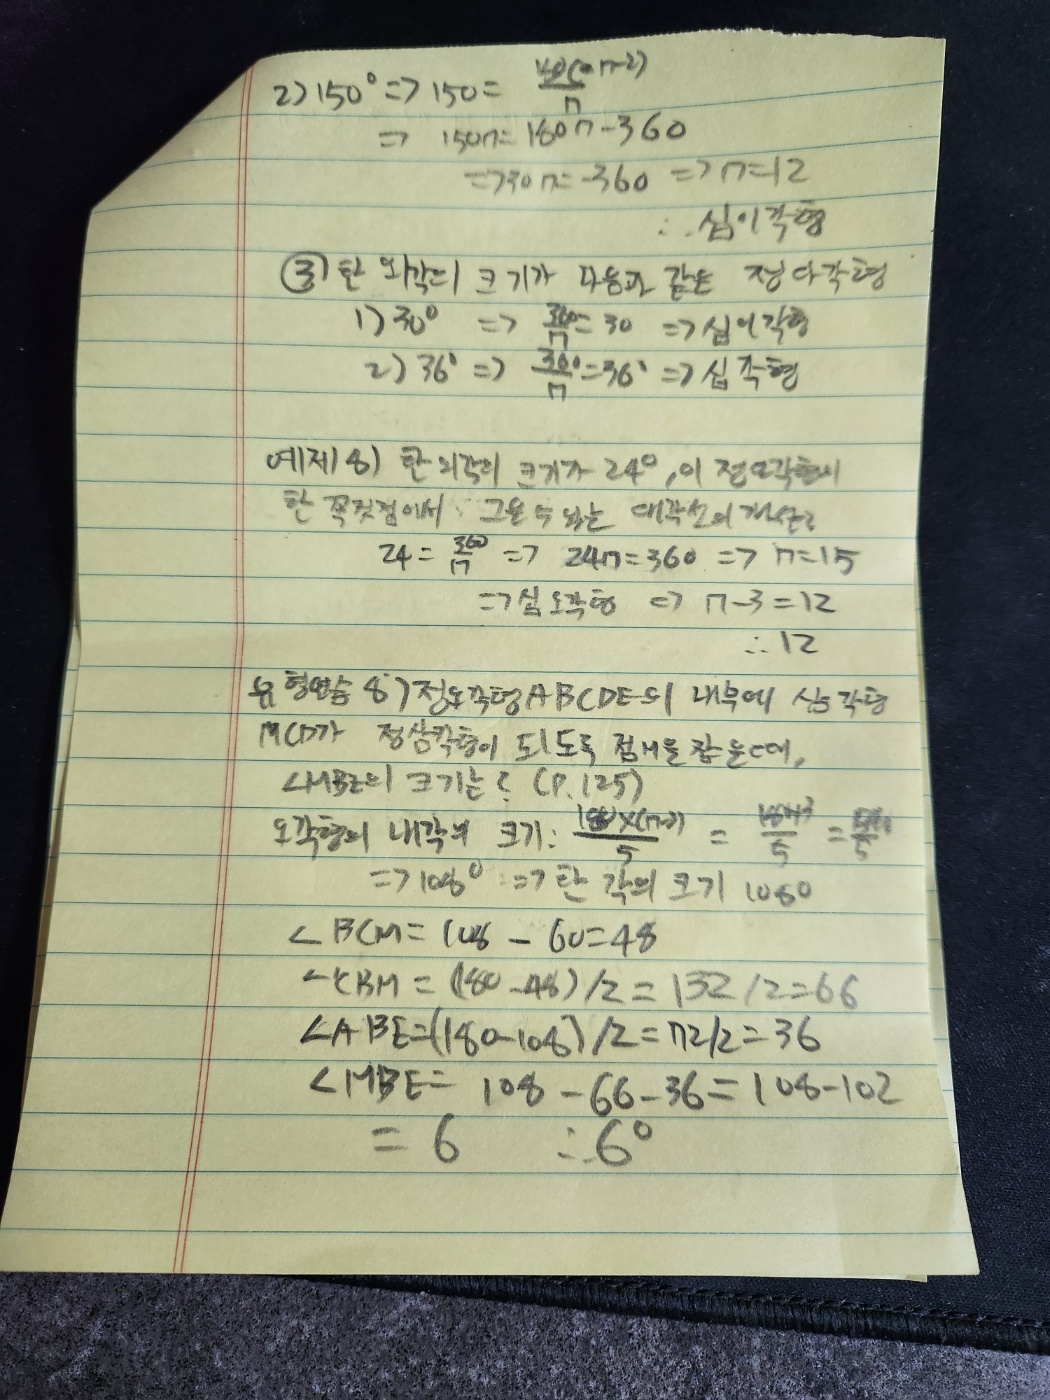 2) 150° => 150 = 180(n-2)/n
=> 150n = 180n - 360
=> 30n = -360 => n = 12
∴ 십이각형
③ 한 외각의 크기가 다음과 같은 정다각형
1) 30° => 360/n = 30 => 십이각형
2) 36° => 360°/n = 36° => 십각형
예제 8) 한 외각의 크기가 24°, 이 정다각형의
한 꼭짓점에서 그을 수 있는 대각선의 개수는?
24 = 360/n => 24n = 360 => n = 15
=> 십오각형 => n - 3 = 12
∴ 12
유형연습 8) 정오각형 ABCDE의 내부에 삼각형
MCD가 정삼각형이 되도록 점 M을 잡을 때,
∠MBE의 크기는? (P.125)
오각형의 내각의 크기: 180×(n-2)/5 = 180×3/5 =
=> 108° => 한 각의 크기 108°
∠BCM = 108 - 60 = 48
∠CBM = (180 - 48)/2 = 132/2 = 66
∠ABE = (180-108)/2 = 72/2 = 36
∠MBE = 108 - 66 - 36 = 108 - 102
= 6 ∴ 6°